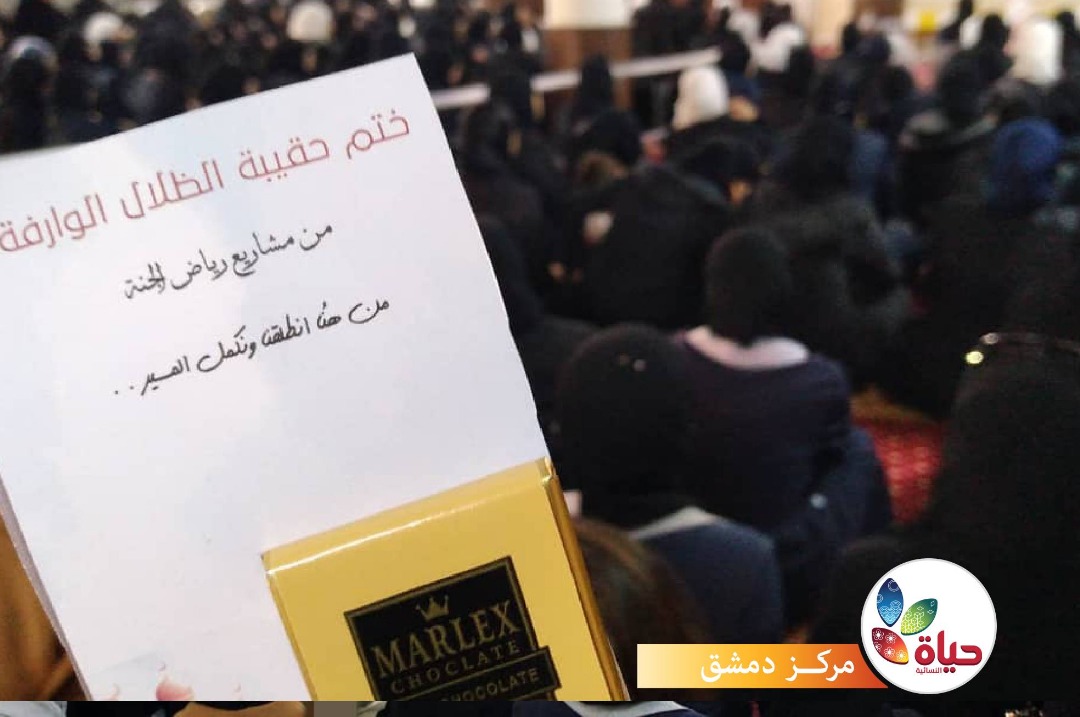 ختم حقيبة الظلال الوارفة
من مشاريع رياض الجنة
من هنا انطلقنا ونكمل المسير..
MARLEX
CHOCLATE
CHOCOLATE
مركز دمشق
حياة
النسائية